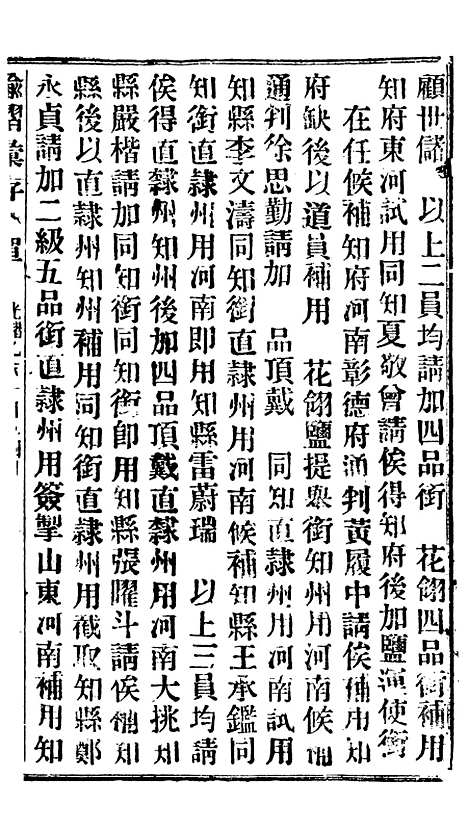 顧世儲　以上二員均請加四品銜　花翎四品銜補用
知府東河試用同知夏敬曾請俟得知府後加鹽運使銜
在任候補知府河南彰德府通判黃履中請俟補用知
府缺後以道員補用　花翎鹽提舉銜知州用河南候補
通判徐思勤請加　品頂戴　同知直隸州用河南試用
知縣李文濤同知銜直隸州用河南候補知縣王承鑑同
知銜直隸州用河南即用知縣雷蔚瑞　以上三員均請
俟得直隸州知州後加四品頂戴直隸州用河南大挑知
縣嚴楷請加同知銜同知銜即用知縣張曜斗請俟補知
縣後以直隸州知州補用同知銜直隸州用截取知縣鄭
永貞請加二級五品銜直隸州用簽掣山東河南補用知
諭摺彙存